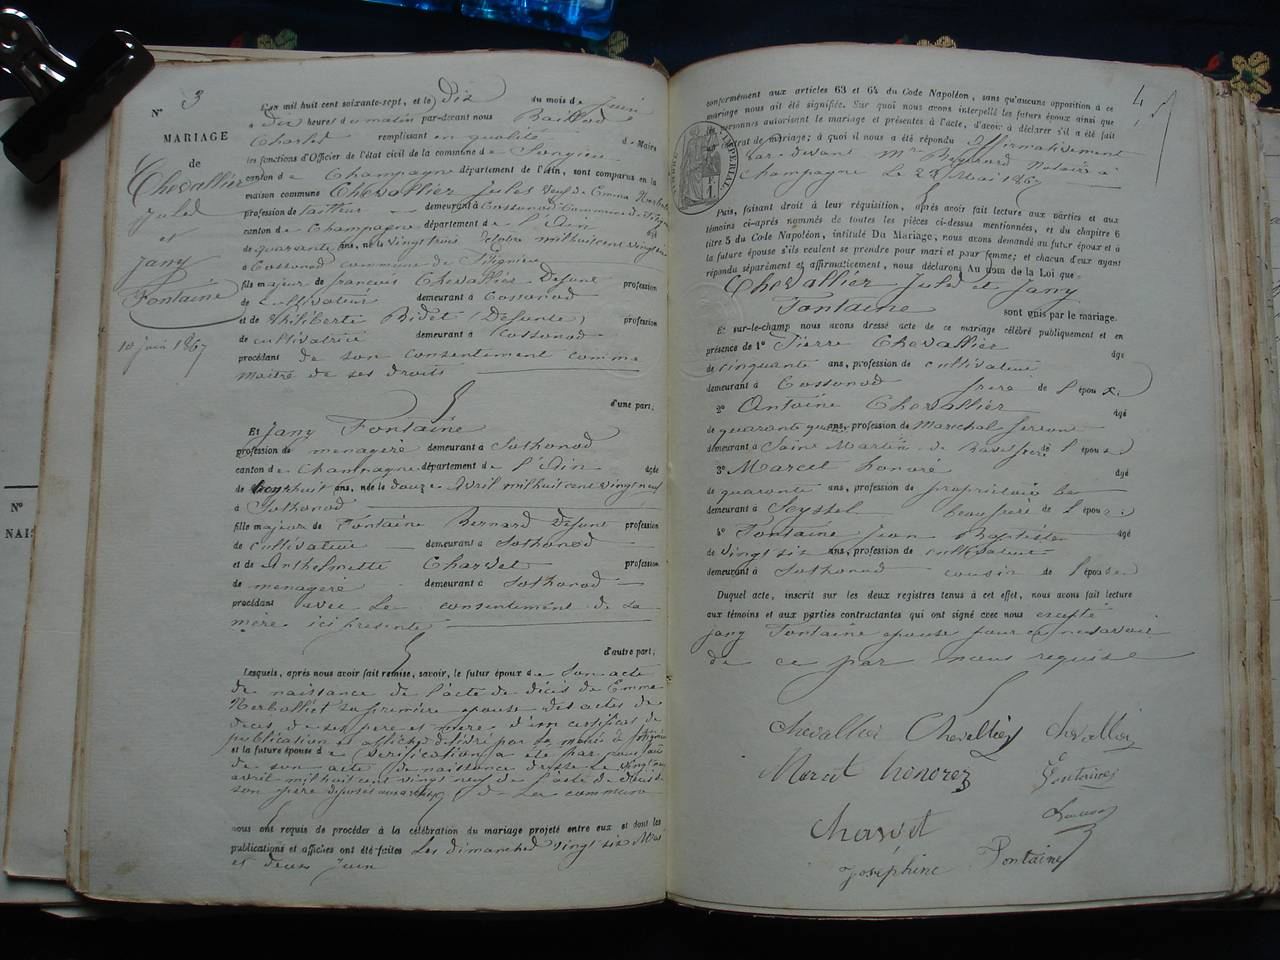 N° 3
MARIAGE
de
Chevallier
Jules
et
Jany
Fontaine
10 juin 1867
L'an mil huit cent soixante-sept, et le dix du mois de Juin
à dix heures du matin par-devant nous Baillod
Charles remplissant en qualité de Maire
les fonctions d'Officier de l'état civil de la commune de Songieu
canton de Champagne département de l'Ain, sont comparus en la
maison commune Chevallier Jules veuf de Emma
profession de demeurant à Cossonod Commune de
canton de Champagne département de l'Ain âgé
de quarante ans, né le vingt trois octobre mil huit cent vingt
à Cossonod commune de
fils majeur de françois Chevallier Defunt profession
de Cultivateur demeurant à Cossonod
et de Philiberte Bidet (Defunte) profession
de cultivatrice demeurant à Cossonod
procédant de son consentement comme
maitre de ses droits
d'une part,
Et Jany Fontaine
profession de menagere demeurant à Sothonod
canton de Champagne département de l'Ain âgée
de huit ans, née le douze Avril mil huit cent vingt neuf
à Sothonod
fille majeur de Fontaine Bernard Defunt profession
de cultivateur demeurant à Sothonod
et de Anthelmette Charvet profession
de menagere demeurant à Sothonod
procédant avec le consentement de sa
mère ici presente
d'autre part;
Lesquels, après nous avoir fait remise, savoir, le futur époux de Son acte
de naissance de l'acte de décès de Emma
sa première epouse des actes de
décès de ses père et mère d'un certificat de
publication et affiche délivré par le maire de
et la future épouse de verification a été par nous
de son acte de naissance dressé le
avril mil huit cent vingt neuf de l'acte de décès de
son père déposés aux archives de la commune
nous ont requis de procéder à la célébration du mariage projeté entre eux et dont les
publications et affiches ont été faites les dimanches vingt six Mai
et deux Juin
4
conformément aux articles 63 et 64 du Code Napoléon, sans qu'aucune opposition à ce
mariage nous ait été signifiée. Sur quoi nous avons interpellé les futurs époux ainsi que
les personnes autorisant le mariage et présentes à l'acte, d'avoir à déclarer s'il a été fait
un contrat de mariage; à quoi il nous a été répondu Affirmativement
par devant Me Notaire à
Champagne le 28 Mai 1867
TIMBRE IMPERIAL
Puis, faisant droit à leur réquisition, après avoir fait lecture aux parties et aux
témoins ci-après nommés de toutes les pièces ci-dessus mentionnées, et du chapitre 6
titre 5 du Code Napoléon, intitulé Du Mariage, nous avons demandé au futur époux et à
la future épouse s'ils veulent se prendre pour mari et pour femme; et chacun d'eux ayant
répondu séparément et affirmativement, nous déclarons Au nom de la Loi que
Chevallier Jules et Jany
Fontaine sont unis par le mariage.
Et sur-le-champ nous avons dressé acte de ce mariage célébré publiquement et en
présence de 1° Pierre Chevallier âgé
de cinquante ans, profession de cultivateur
demeurant à Cossonod frere de l'époux.
2° Antoine Chevallier âgé
de quarante quatre ans, profession de Marechal ferrant
demeurant à Saint Martin de Bavel frere de l'époux
3° Marcet honoré âgé
de quarante ans, profession de propriétaire
demeurant à Seyssel beaufrere de l'époux
4° Fontaine Jean Baptiste âgé
de vingt six ans, profession de cultivateur
demeurant à Sothonod cousin de l'épouse
Duquel acte, inscrit sur les deux registres tenus à cet effet, nous avons fait lecture
aux témoins et aux parties contractantes qui ont signé avec nous excepté
jany Fontaine epouse pour ne savoir
de ce par nous requise
Chevallier Chevallier Chevallier
Marcet honorez Fontaine
Charvet
Josephine Fontaine
N°
NAIS